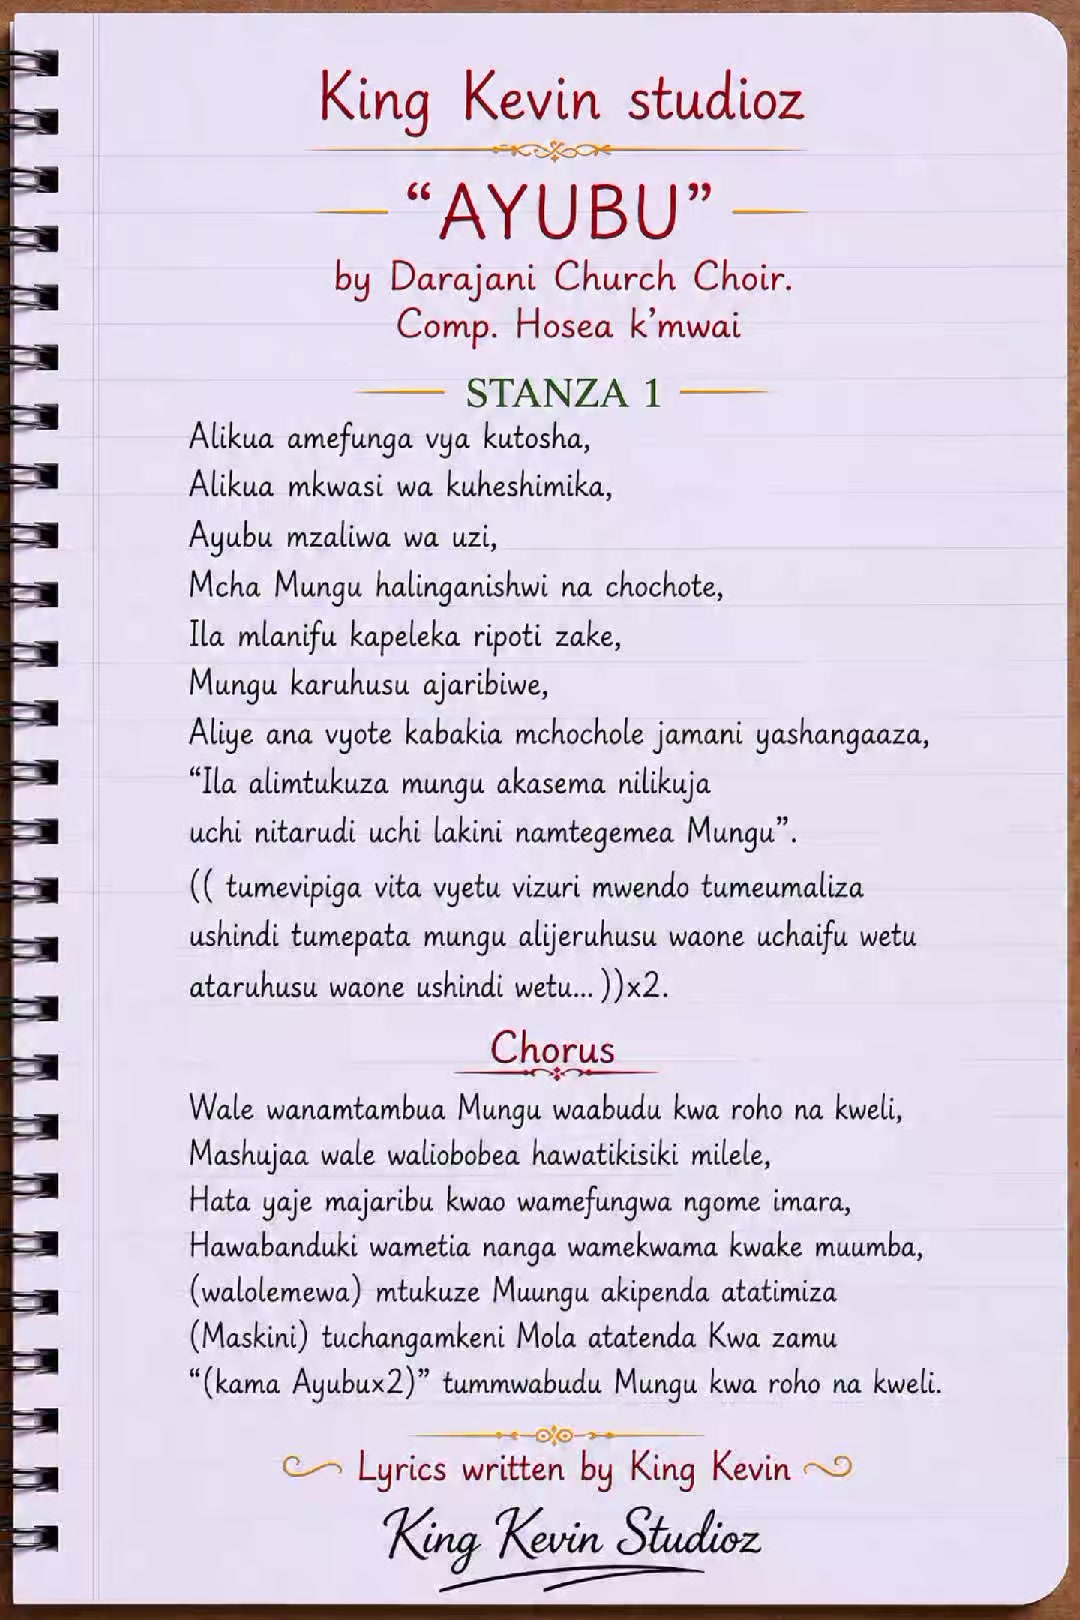 King Kevin studioz
"AYUBU"
by Darajani Church Choir.
Comp. Hosea k'mwai
STANZA 1
Alikua amefunga vya kutosha,
Alikua mkwasi wa kuheshimika,
Ayubu mzaliwa wa uzi,
Mcha Mungu halinganishwi na chochote,
Ila mlanifu kapeleka ripoti zake,
Mungu karuhusu ajaribiwe,
Aliye ana vyote kabakia mchochole jamani yashangaaza,
"Ila alimtukuza mungu akasema nilikuja
uchi nitarudi uchi lakini namtegemea Mungu".
(( tumevipiga vita vyetu vizuri mwendo tumeumaliza
ushindi tumepata mungu alijeruhusu waone uchaifu wetu
ataruhusu waone ushindi wetu... ))x2.
Chorus
Wale wanamtambua Mungu waabudu kwa roho na kweli,
Mashujaa wale waliobobea hawatikisiki milele,
Hata yaje majaribu kwao wamefungwa ngome imara,
Hawabanduki wametia nanga wamekwama kwake muumba,
(walolemewa) mtukuze Muungu akipenda atatimiza
(Maskini) tuchangamkeni Mola atatenda Kwa zamu
"(kama Ayubux2)" tummwabudu Mungu kwa roho na kweli.
Lyrics written by King Kevin
King Kevin Studioz